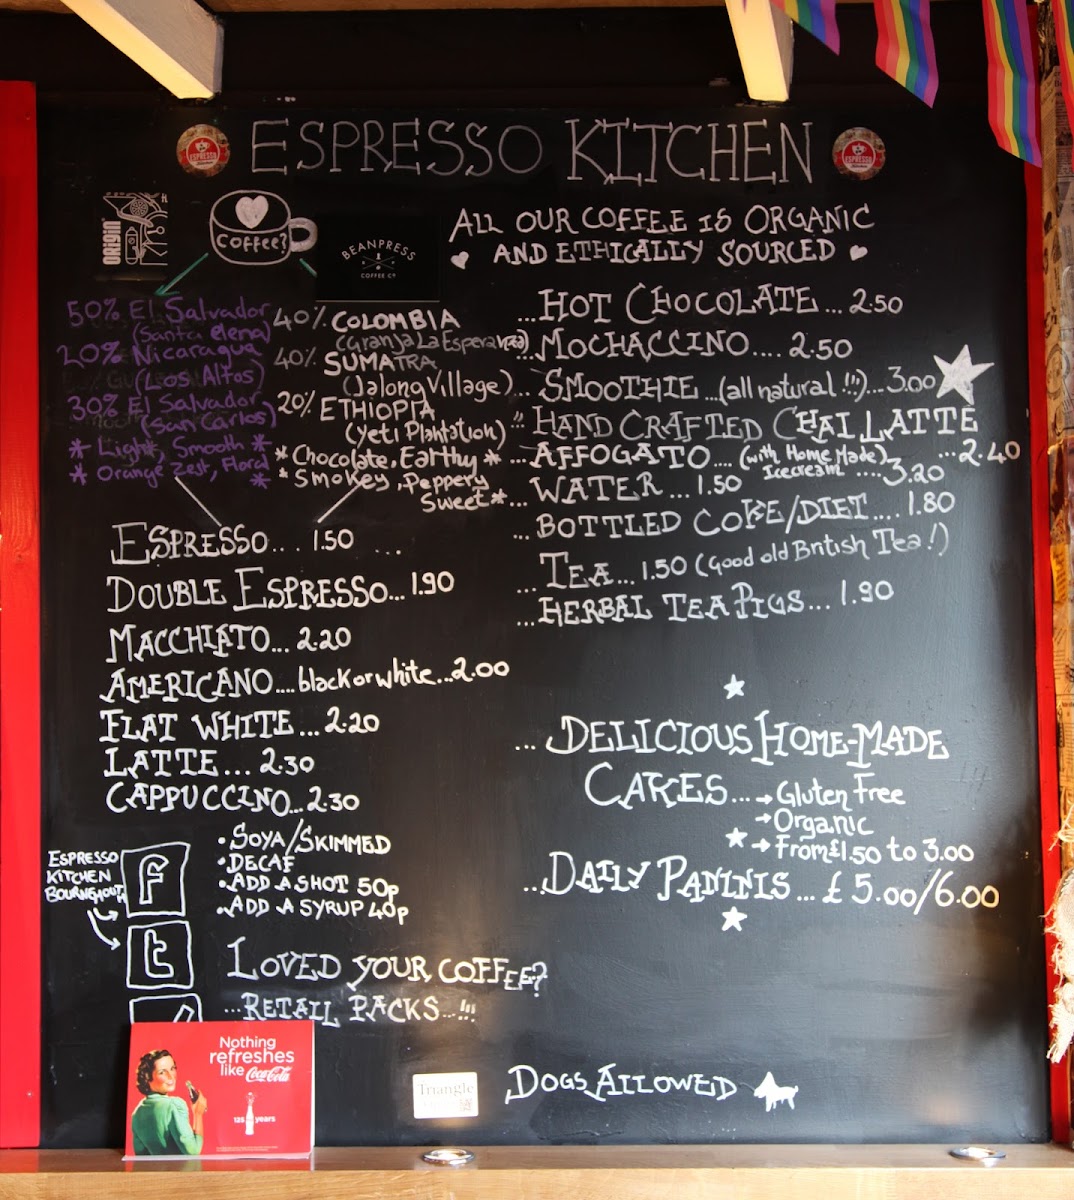 ESPRESSO KITCHEN
ESPRESSO
ESPRESSO
ORIGIN
Coffee?
BEANPRESS
COFFEE Co
ALL OUR COFFEE IS ORGANIC
AND ETHICALLY SOURCED
50% El Salvador
(Santa elena)
20% Nicaragua
(Los Altos)
30% El Salvador
(San Carlos)
* Light, Smooth *
* Orange Zest, Floral *
40% COLOMBIA
(Granja La Esperanza)
40% SUMATRA
(Jalong Village)
20% ETHIOPIA
(Yeti Plantation)
* Chocolate, Earthy *
* Smokey, Peppery
Sweet *
ESPRESSO... 1.50 ...
DOUBLE ESPRESSO... 1.90
MACCHIATO... 2.20
AMERICANO.... black or white...2.00
FLAT WHITE ... 2.20
LATTE... 2.30
CAPPUCCINO... 2.30
• SOYA/SKIMMED
• DECAF
• ADD A SHOT 50p
• ADD A SYRUP 40p
ESPRESSO
KITCHEN
BOURNEMOUTH
f
t
LOVED YOUR COFFEE?
...RETAIL PACKS...!!!
...HOT CHOCOLATE... 2.50
...MOCHACCINO.... 2.50
...SMOOTHIE...(all natural!!!)...3.00
!! HAND CRAFTED CHAI LATTE
...2.40
...AFFOGATO....(with Home Made)
Icecream ....3.20
...WATER... 1.50
...BOTTLED COKE/DIET.... 1.80
...TEA... 1.50 (Good old British Tea!)
...HERBAL TEA PIGS... 1.90
...DELICIOUS HOME-MADE
CAKES...→Gluten Free
→Organic
→From £1.50 to 3.00
...DAILY PANINIS ... £5.00/6.00
DOGS ALLOWED
Nothing
refreshes
like Coca-Cola
125 years
Triangle